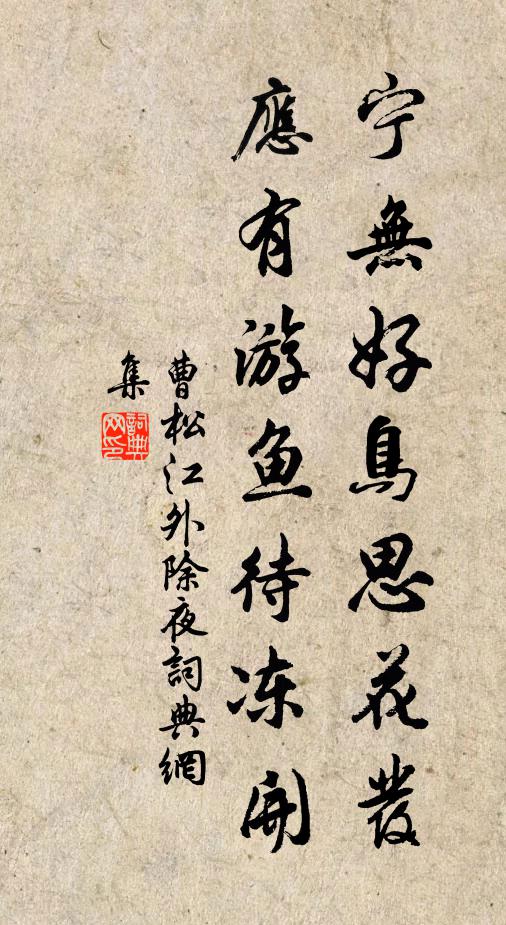 宁無好鳥思花發
應有游鱼待冻開
曹松江外除夜詞典網
集
詞典
网印